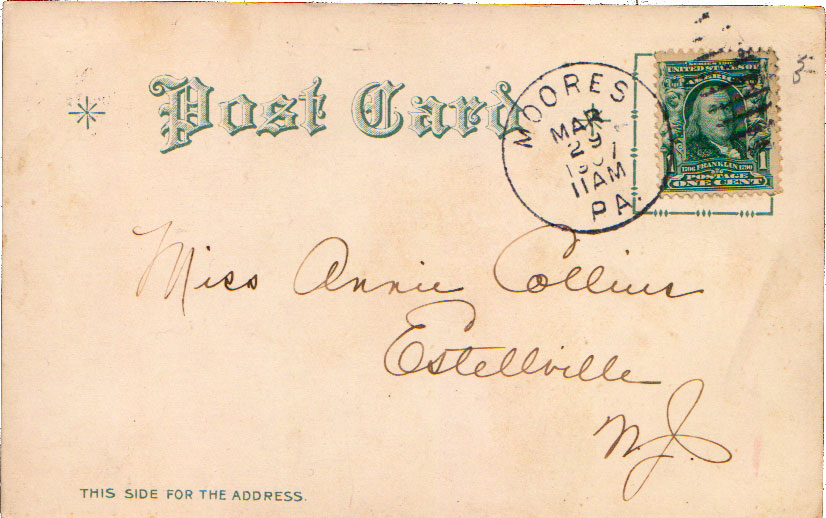 Post Card
MOORES
MAR
29
1907
11AM
PA.
SERIES 1902
UNITED STATES OF
AMERICA
1706 FRANKLIN 1790
1 POSTAGE 1
ONE CENT
Miss Annie Collins
Estellville
N.J.
THIS SIDE FOR THE ADDRESS.